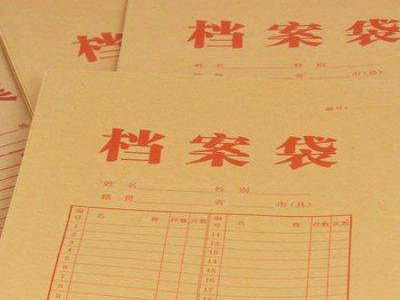 档案袋
姓名 性别
市(县)
档案
档案袋
姓名 性别
籍贯 省 市(县)
编号 名称 件数 页数 编号 名称 件数 页数
1 11
2 12
3 13
4 14
5 15
6 16
7 17
8 18
9